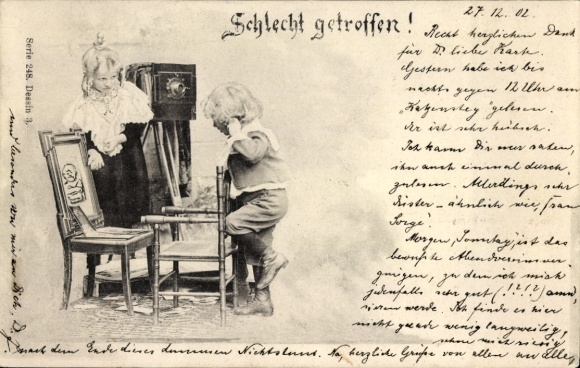 Schlecht getroffen!
Serie 248. Dessin 3.
27.12.02.
Recht herzlichen Dank
für D. liebe Karte.
Gestern habe ich bis
nachts gegen 12 Uhr am
„Katzensteg" gelesen.
Er ist sehr hübsch.
Ich kann Dir nur raten,
ihn auch einmal durch-
zulesen. Allerdings sehr
düster – ähnlich wie „Frau
Sorge".
Morgen, Sonntag, ist das
bewußte Abend
zu dem ich mich
jedenfalls sehr gut (!?!?) amü-
sieren werde. Ich finde es hier
nicht gerade wenig langweilig,
sehne mich riesig
nach dem Ende dieses dummen Nichtstuns. Na, herzliche Grüße von allen an alle,
und besonders von mir an Dich,